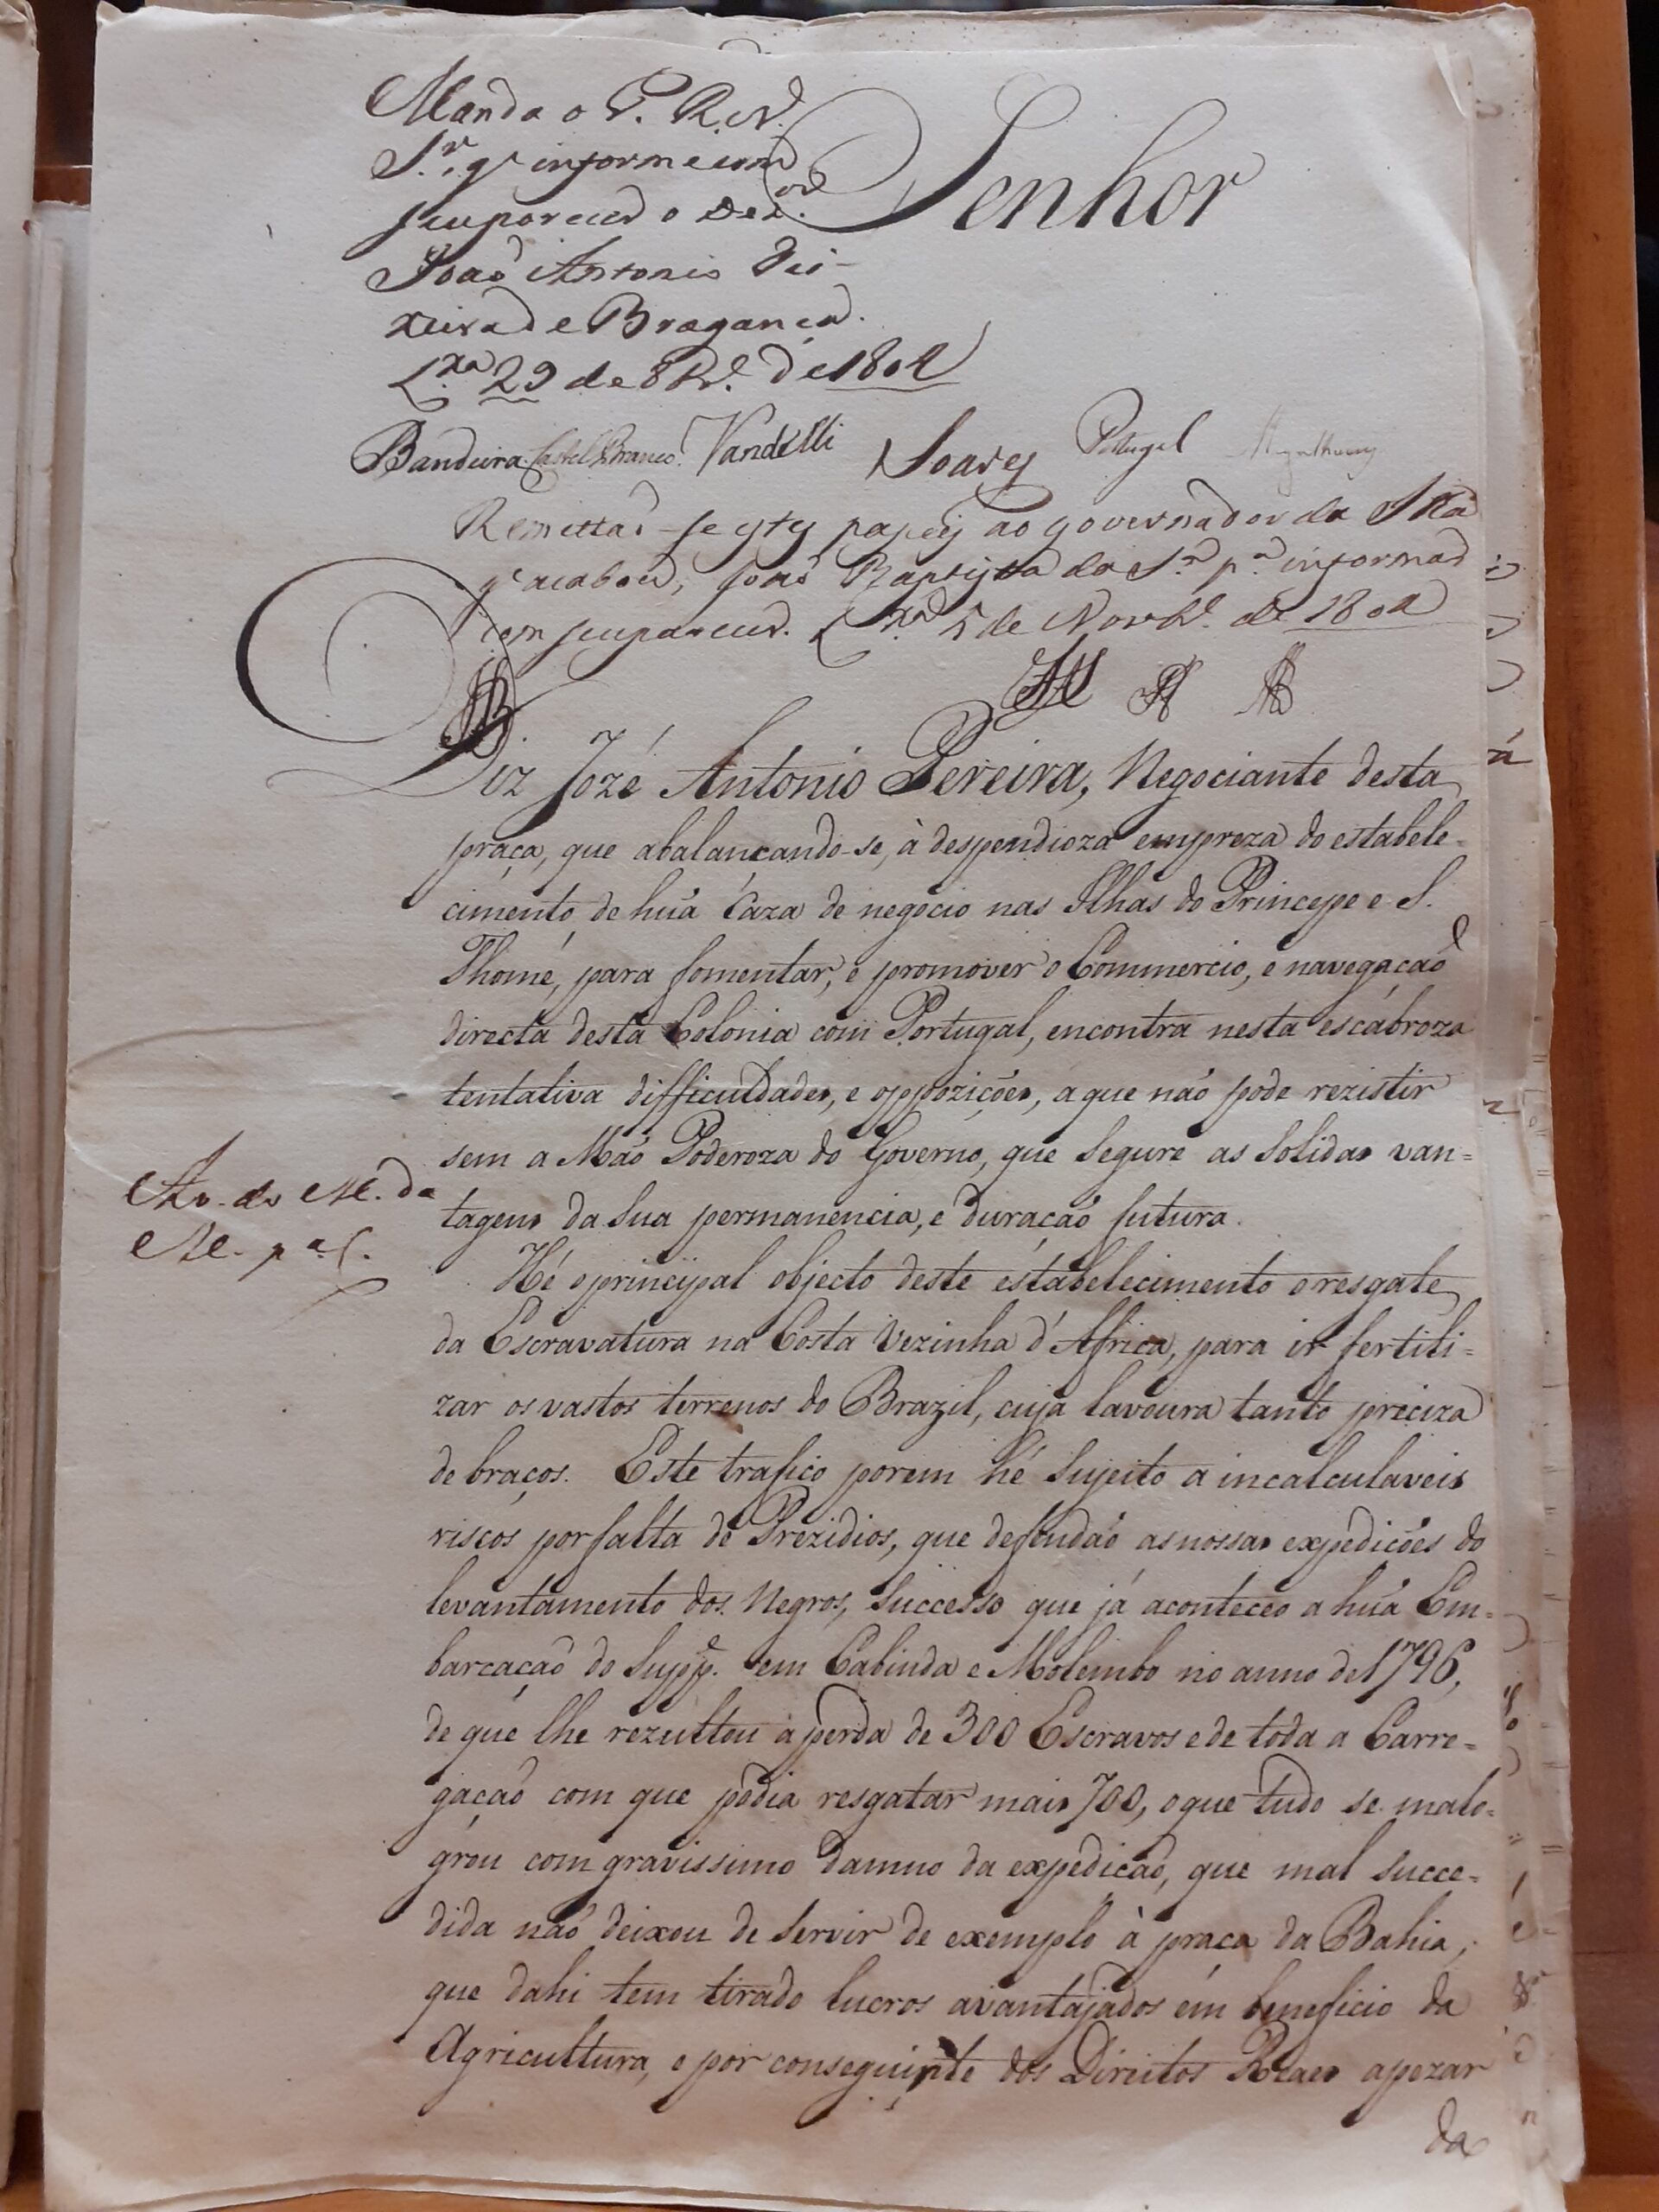 Manda o P. R. N.
Sr., q' informe com
seu parecer o Dezor.
João Antonio Tei-
xeira de Bragança.
Lxa. 29 de 8br.o de 1804
Senhor
Bandeira Castel Branco Vandelli Soares Portugal
Remettão-se estes papeis ao governador da Ilha
q' acabou, João Baptista da Sa. pa. informar
com seu parecer. Lxa. 5 de Novbro. de 1804
Diz Jozé Antonio Pereira, Negociante desta
praça, que abalançando-se, à despendioza empreza do estabele=
cimento de huã Caza de negocio nas Ilhas do Princepe e S.
Thomé, para fomentar, e promover o Commercio, e navegação
directa desta Colonia com Portugal, encontra nesta escabroza
tentativa difficuldades, e oppozições, a que não pode rezistir
sem a Mão Poderoza do Governo, que segure as solidas van=
tagens da sua permanencia, e duração futura.
Hé o principal objecto deste estabelecimento o resgate
da Escravatura na Costa Vezinha d'Africa, para ir fertili=
zar os vastos terrenos do Brazil, cuja lavoura tanto preciza
de braços. Este trafico porem hé sujeito a incalculaveis
riscos por falta de Prezidios, que defendão as nossas expedições do
levantamento dos Negros, successo que já aconteceo a huã Em=
barcação do Suppe. em Cabinda e Molembo no anno de 1796,
de que lhe rezultou a perda de 300 Escravos e de toda a Carre=
gação com que podia resgatar mais 700, o que tudo se malo=
grou com gravissimo damno da expedicão, que mal succe=
dida não deixou de servir de exemplo à praça da Bahia,
que dahi tem tirado lucros avantajados em beneficio da
Agricultura, e por conseguinte dos Direitos Reaes apezar
da